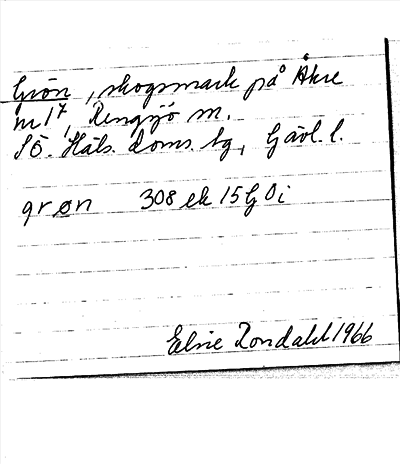 Grön, skogsmark på Åkre
nr 1⁷, Rengsjö sn.
Sö. Häls. doms. bg, Gävl. l.
grøn 308 ek 15 G Di
Elsie Rondahl 1966